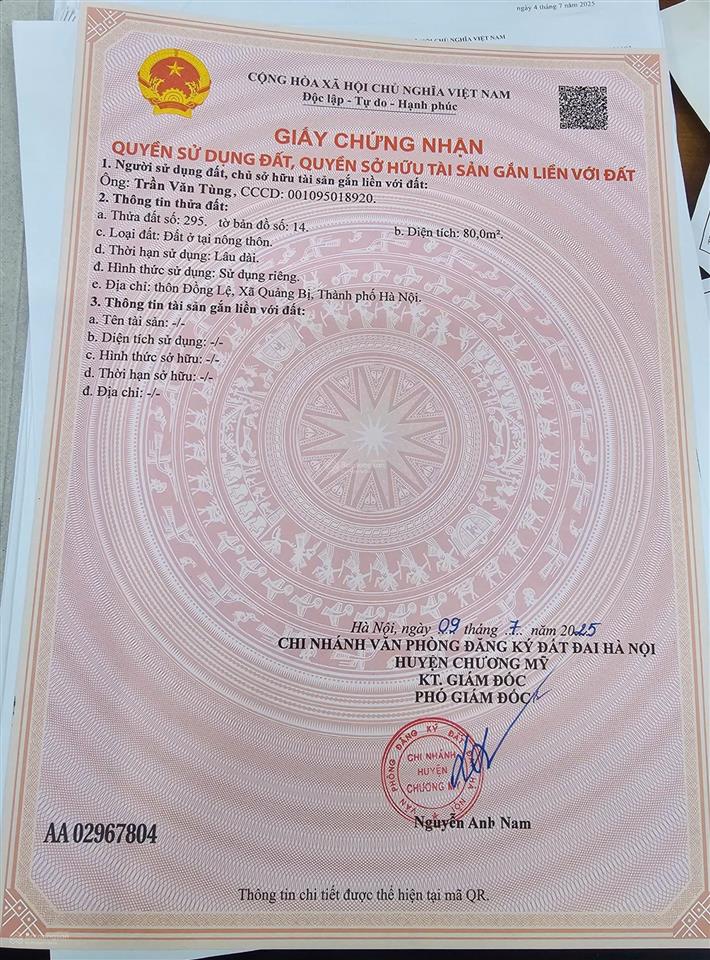 ngày 4 tháng 7 năm 2025
CHỦ NGHĨA VIỆT NAM
CỘNG HÒA XÃ HỘI CHỦ NGHĨA VIỆT NAM
Độc lập - Tự do - Hạnh phúc
GIẤY CHỨNG NHẬN
QUYỀN SỬ DỤNG ĐẤT, QUYỀN SỞ HỮU TÀI SẢN GẮN LIỀN VỚI ĐẤT
1. Người sử dụng đất, chủ sở hữu tài sản gắn liền với đất:
Ông: Trần Văn Tùng, CCCD: 001095018920.
2. Thông tin thửa đất:
a. Thửa đất số: 295. tờ bản đồ số: 14. b. Diện tích: 80,0m².
c. Loại đất: Đất ở tại nông thôn.
d. Thời hạn sử dụng: Lâu dài.
đ. Hình thức sử dụng: Sử dụng riêng.
e. Địa chỉ: thôn Đồng Lệ, Xã Quảng Bị, Thành phố Hà Nội.
3. Thông tin tài sản gắn liền với đất:
a. Tên tài sản: -/-
b. Diện tích sử dụng: -/-
c. Hình thức sở hữu: -/-
d. Thời hạn sở hữu: -/-
đ. Địa chỉ: -/-
Hà Nội, ngày 09 tháng 7 năm 2025
CHI NHÁNH VĂN PHÒNG ĐĂNG KÝ ĐẤT ĐAI HÀ NỘI
HUYỆN CHƯƠNG MỸ
KT. GIÁM ĐỐC
PHÓ GIÁM ĐỐC
VĂN PHÒNG ĐĂNG KÝ ĐẤT ĐAI HÀ NỘI
CHI NHÁNH
HUYỆN
CHƯƠNG MỸ
Nguyễn Anh Nam
AA 02967804
Thông tin chi tiết được thể hiện tại mã QR.